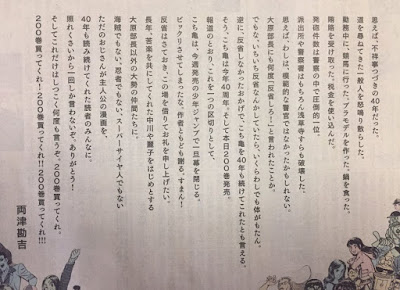 思えば、不祥事つづきの40年だった。
道を尋ねてきた一般人を怒鳴り散らした。
勤務中に、競馬に行った。プラモデルを作った。鍋を食った。
賄賂を受け取った。税金を使い込んだ。
発砲件数は警察の中で圧倒的一位。
派出所や警察署はもちろん浅草寺すらも破壊した。
思えば、わしは、模範的な警官ではなかったかもしれない。
大原部長にも何度「反省しろ!」と言われたことか。
でもな、いちいち反省なんかしていたら、いくらわしでも体がもたん。
逆に、反省しなかったおかげで、こち亀を40年も続けてこれたとも言える。
そう、こち亀は今年40周年。そして本日200巻発売。
報道のとおり、これを一つの区切りとして、
こち亀は、今週発売の少年ジャンプで一旦幕を閉じる。
ビックリさせてしまったな。作者ともども謝る。すまん!
反省はさておき、この場を借りてお礼を申し上げたい。
長年、苦楽を共にしてくれた中川や麗子をはじめとする
大原部長以外の大勢の仲間たちに。
海賊でもない、忍者でもない、スーパーサイヤ人でもない
ただのおじさんが主人公の漫画を、
40年も読み続けてくれた読者のみんなに。
照れくさいから一回しか言わないぞ、ありがとう!
そしてこれだけはしつこく何度も言うぞ、200巻買ってくれ。
200巻買ってくれ!200巻買ってくれ!!200巻買ってくれ!!!
両津勘吉